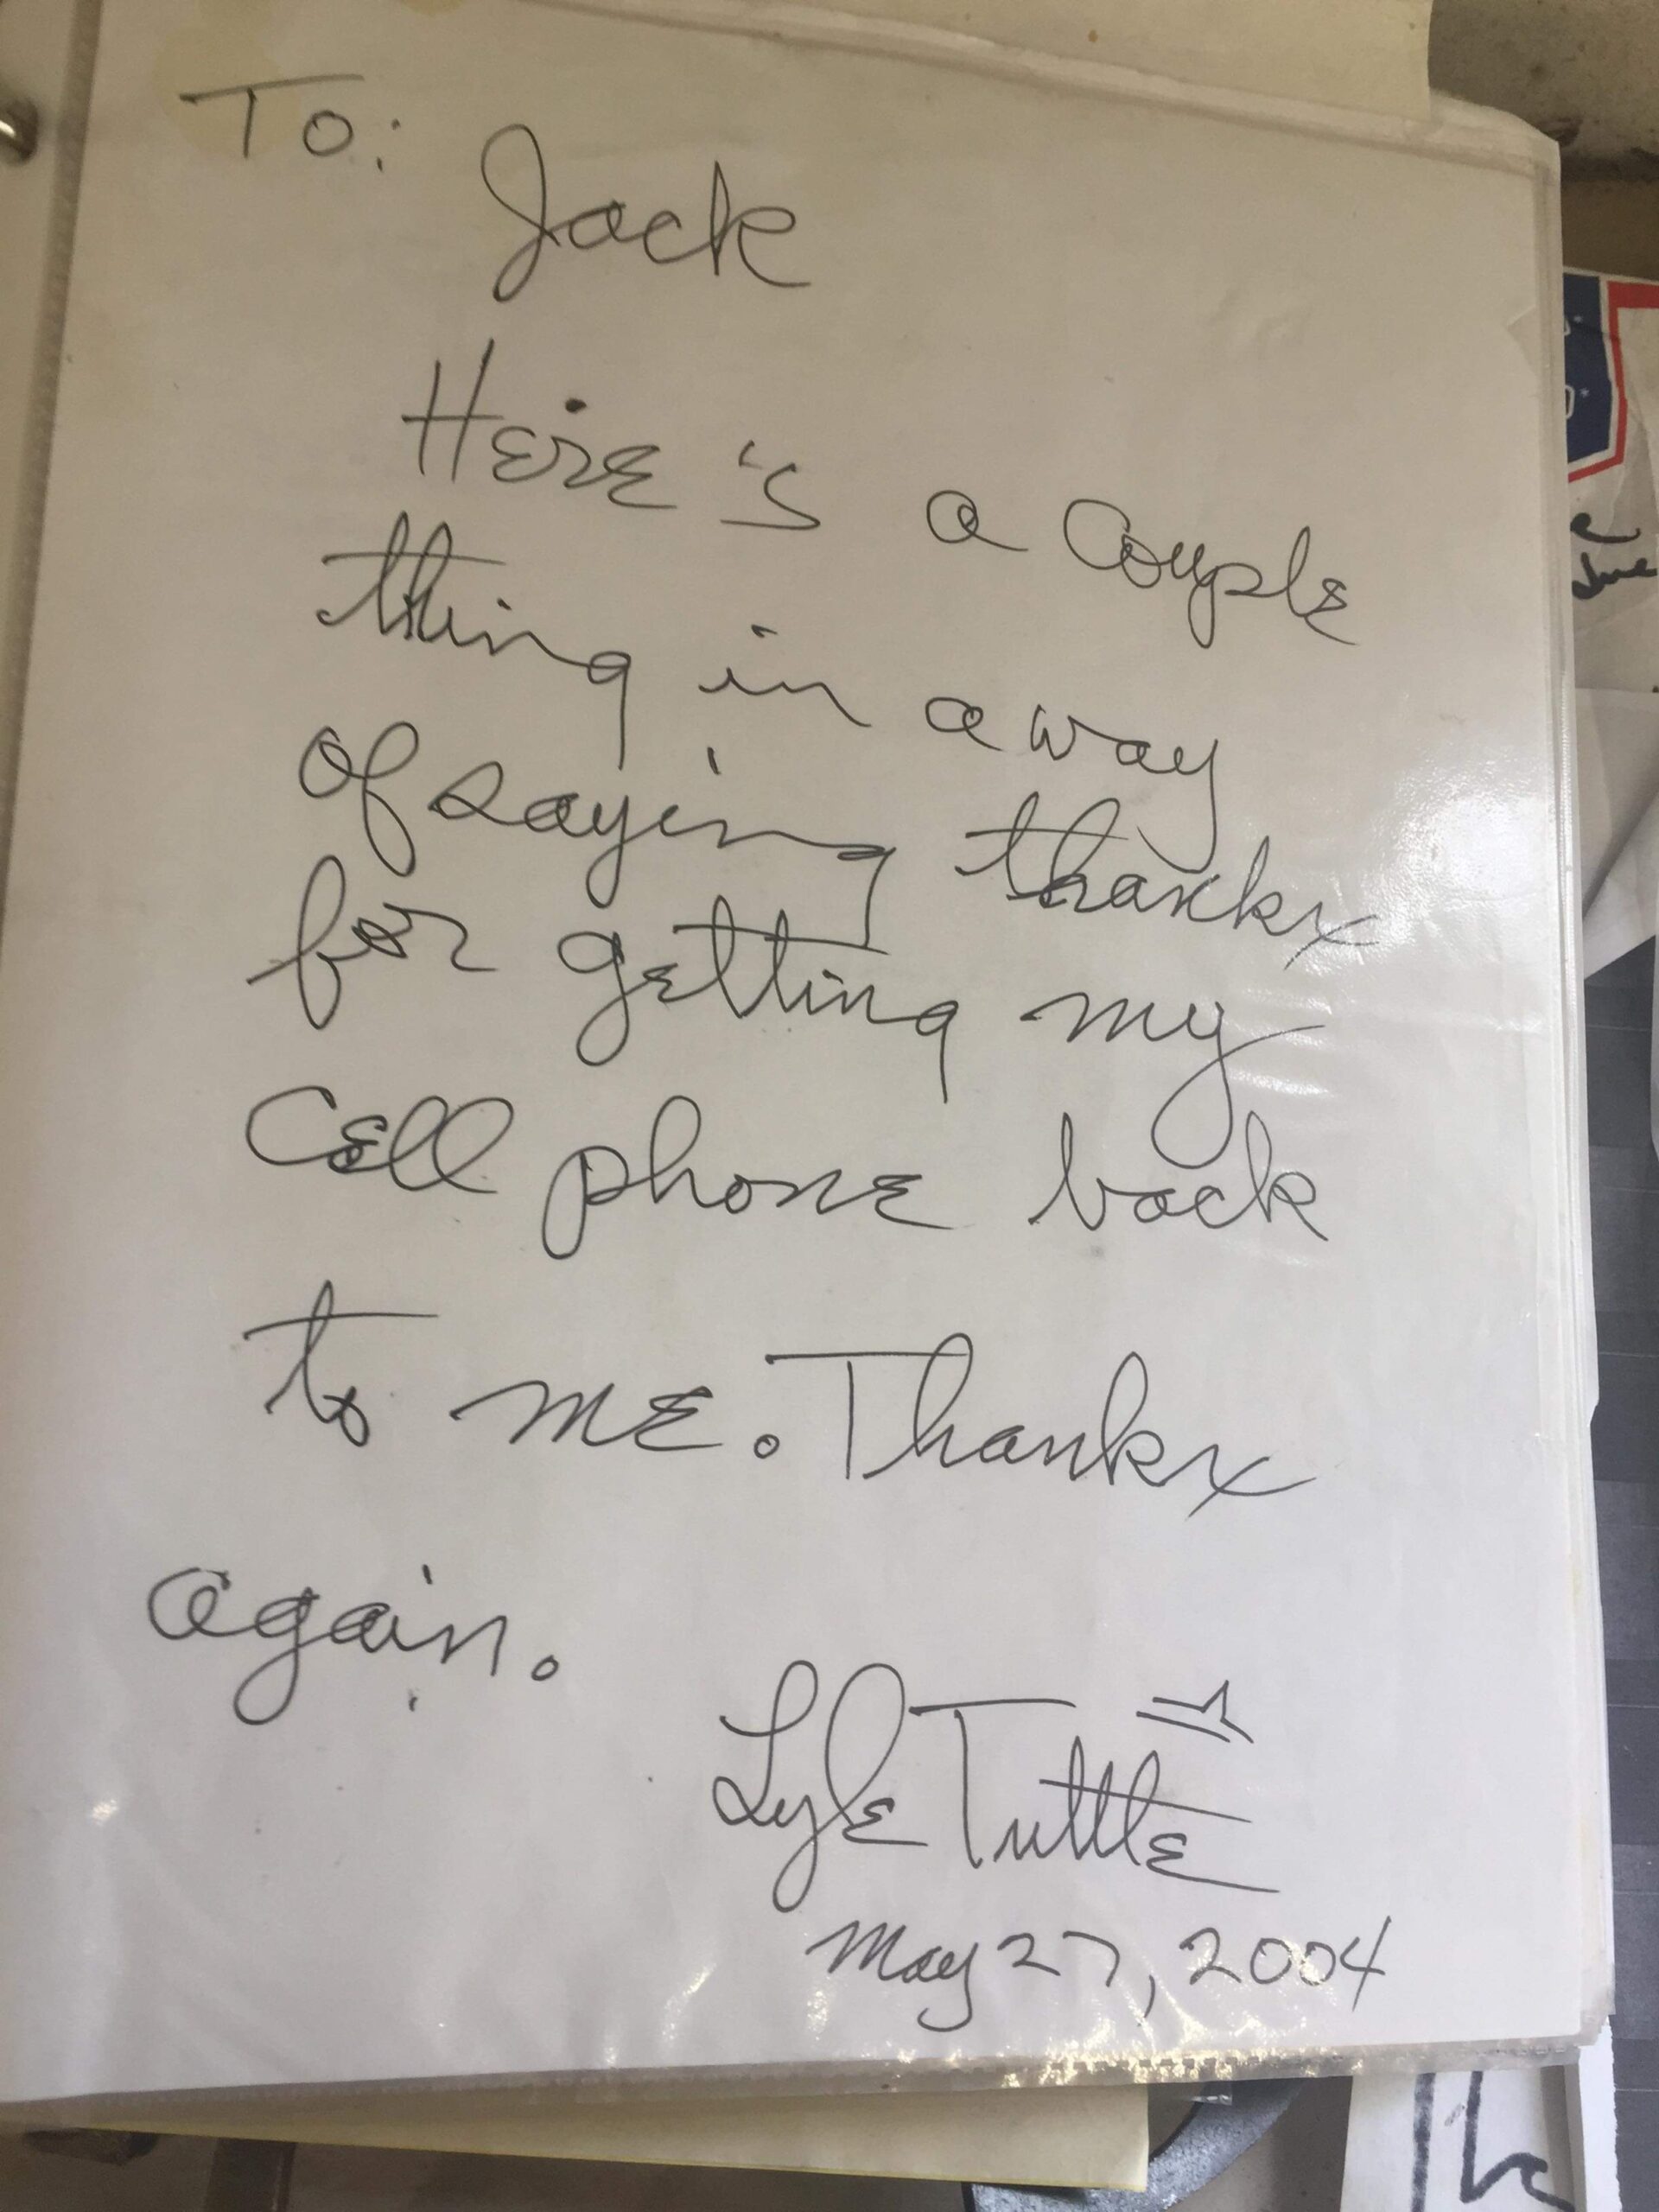 To:
Jack
Here's a couple
thing in a way
of saying thankx
for getting my
Cell phone back
to me. Thankx
again.
Lyle Tuttle
May 27, 2004